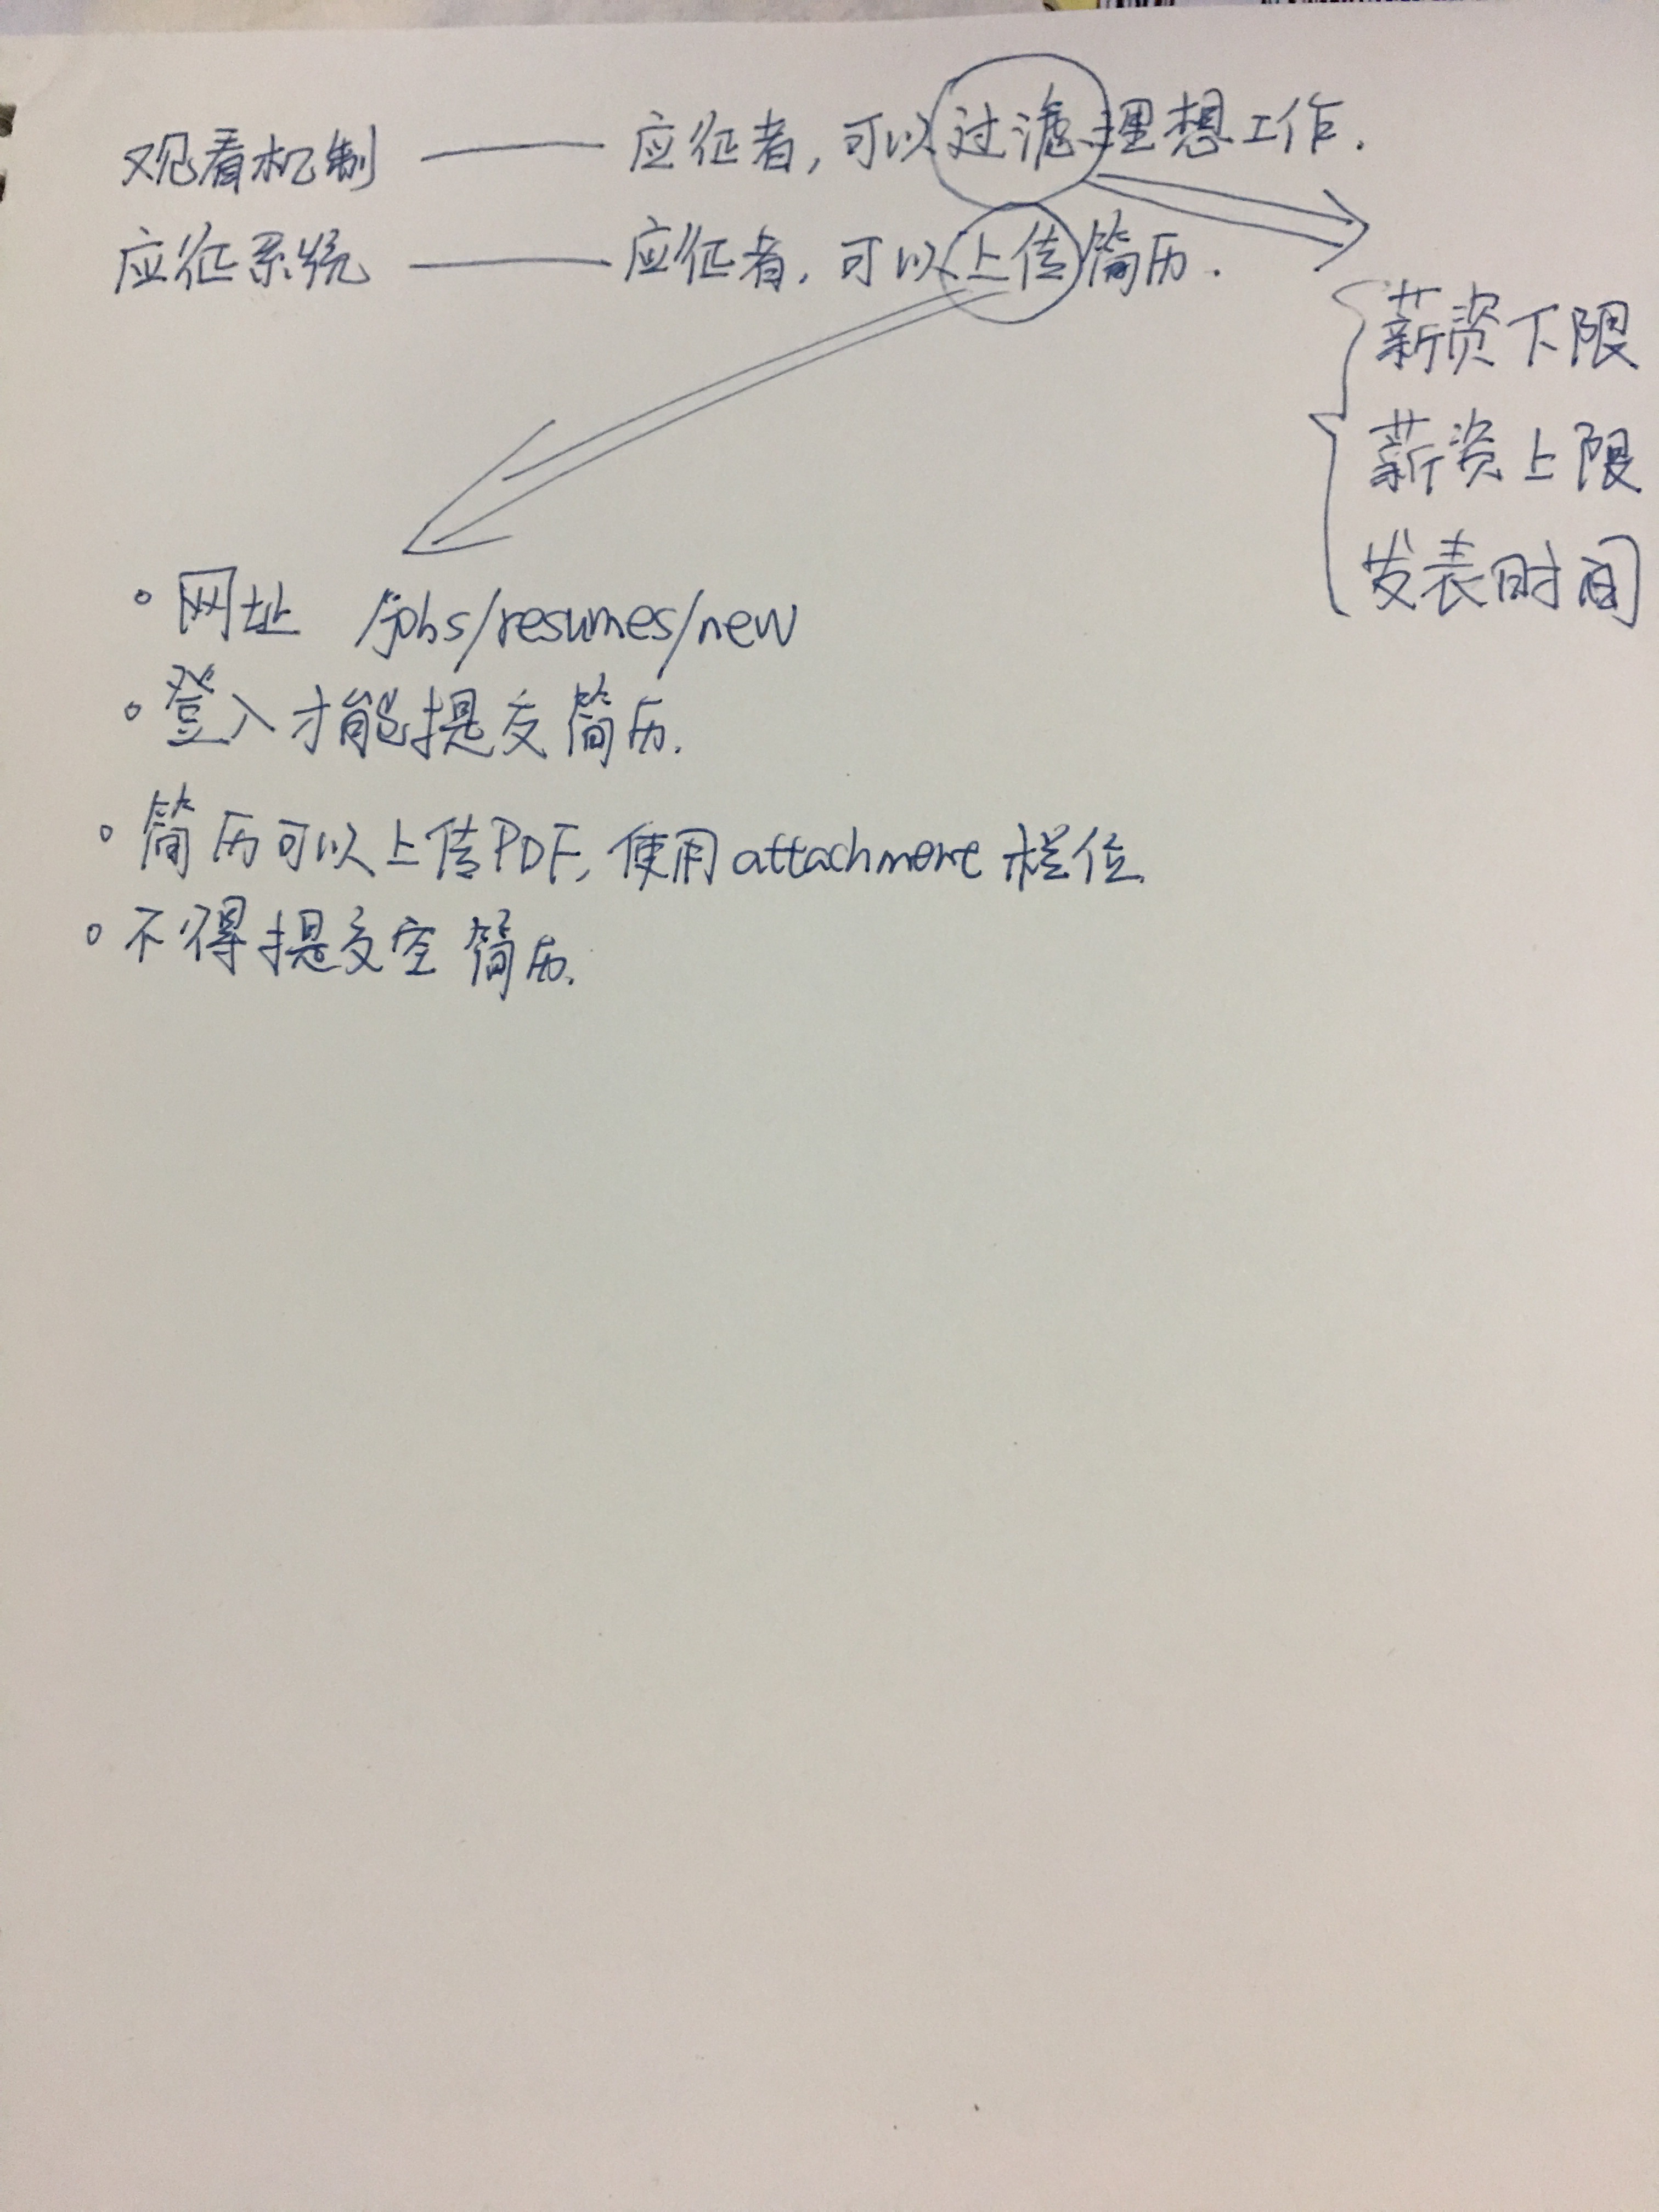 观看机制 —— 应征者,可以过滤理想工作.
应征系统 —— 应征者,可以上传简历.
薪资下限
薪资上限
发表时间
。网址 /jobs/resumes/new
。登入才能提交简历.
。简历可以上传PDF,使用attachment栏位.
。不得提交空简历.